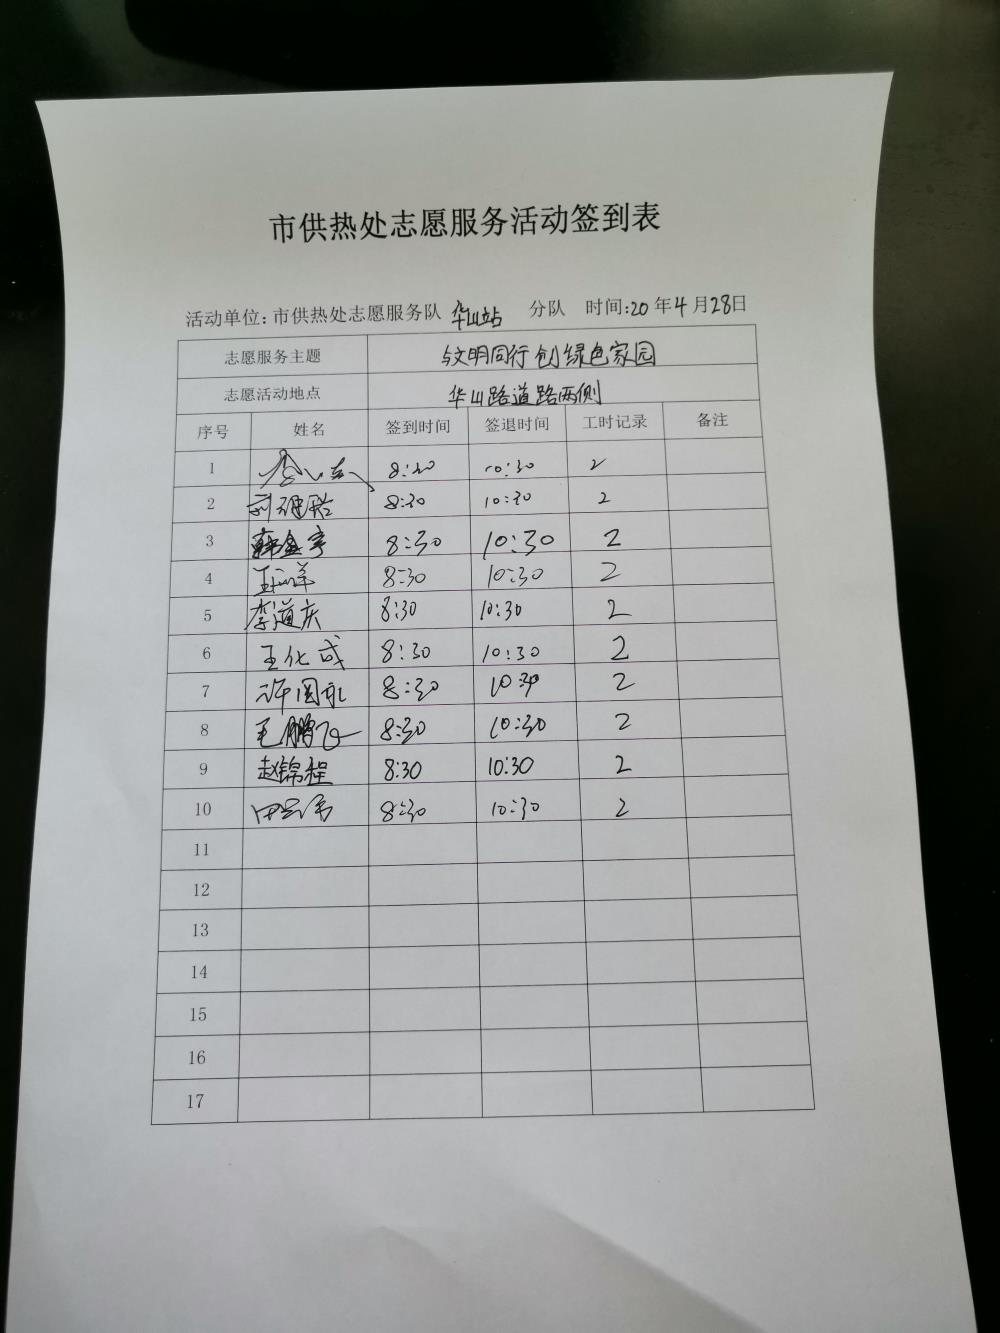 市供热处志愿服务活动签到表
活动单位:市供热处志愿服务队 华山站 分队 时间:20年4月28日
志愿服务主题 与文明同行 创绿色家园
志愿活动地点 华山路道路两侧
序号 姓名 签到时间 签退时间 工时记录 备注
1 8:30 10:30 2
2 8:30 10:30 2
3 8:30 10:30 2
4 8:30 10:30 2
5 李道庆 8:30 10:30 2
6 王化成 8:30 10:30 2
7 许国礼 8:30 10:30 2
8 王鹏飞 8:30 10:30 2
9 赵锦程 8:30 10:30 2
10 8:30 10:30 2
11
12
13
14
15
16
17